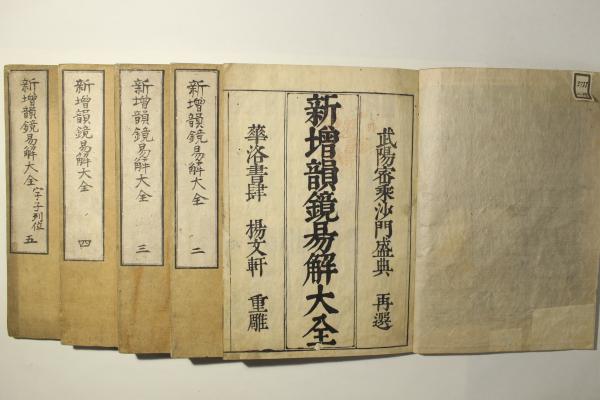 武陽密乘沙門盛典 再選
新增韻鏡易解大全
華洛書肆 楊文軒 重雕
新增韻鏡易解大全 二
新增韻鏡易解大全 三
新增韻鏡易解大全 四
新增韻鏡易解大全 字子列位 五